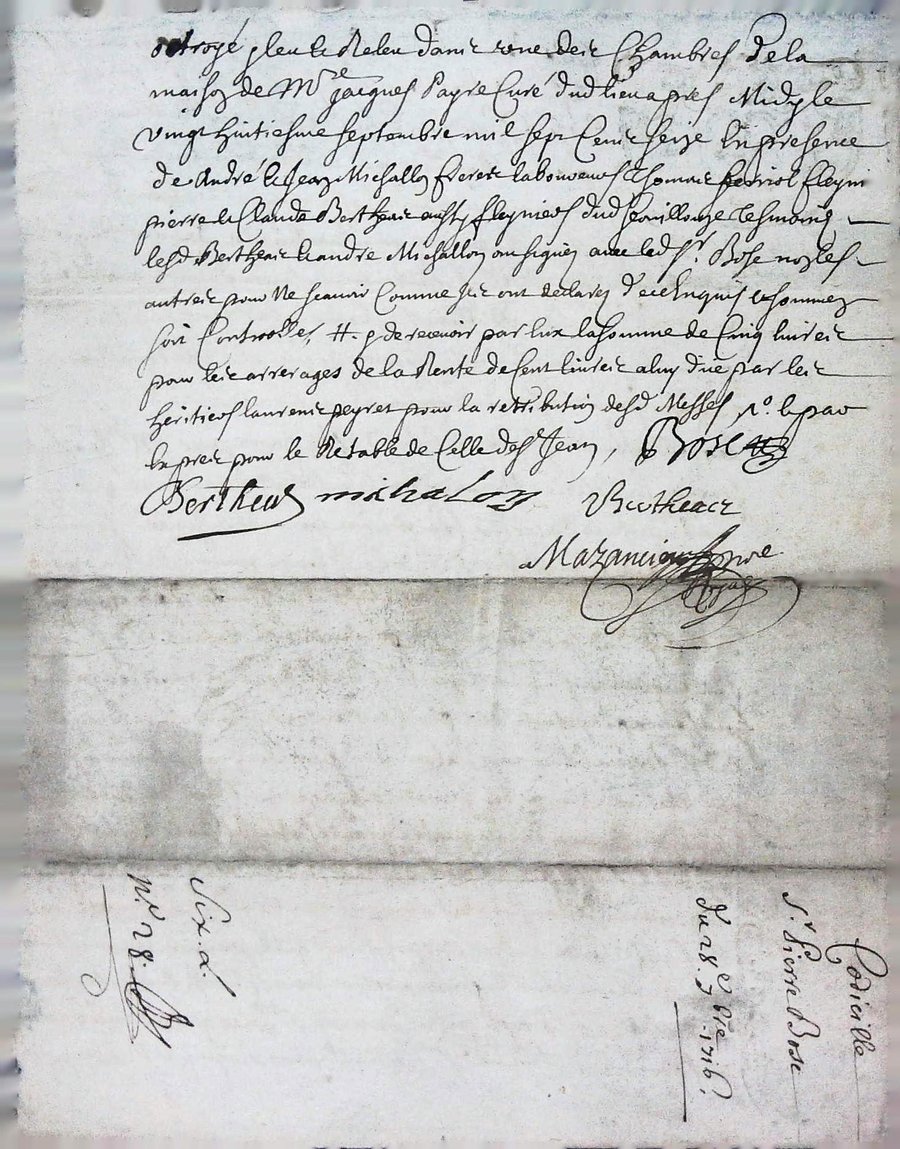 octroyé pleu & Releu dans une des Chambres de la
maison de Mre Jacques Payre Curé dud lieu apres Midy le
vingt huitiesme septembre mil sept Cents seize En presence
de André & Jean Michallon freres laboureurs Thomas
pierre & Claude Bertheas dud tesmoins
lesd Bertheas & andre Michallon ont signez avec led Sr. Bose non les
autres pour Ne scavoir Comme Ils ont declarez de ce Enquis & sommez
soit Controolles, #. p de recevoir par lux la somme de Cinq livres
pour les arrerages de la Rente de Cent livres a luy düe par les
héritiers laurens peyret pour la retribution desd Messes
pour le Retable de Celle de St Jean, Bose
Bertheas michalon Bertheas
Codicille
Sr Pierre Bose
du 28. 7bre 1716.
Six. d.
No. 28.